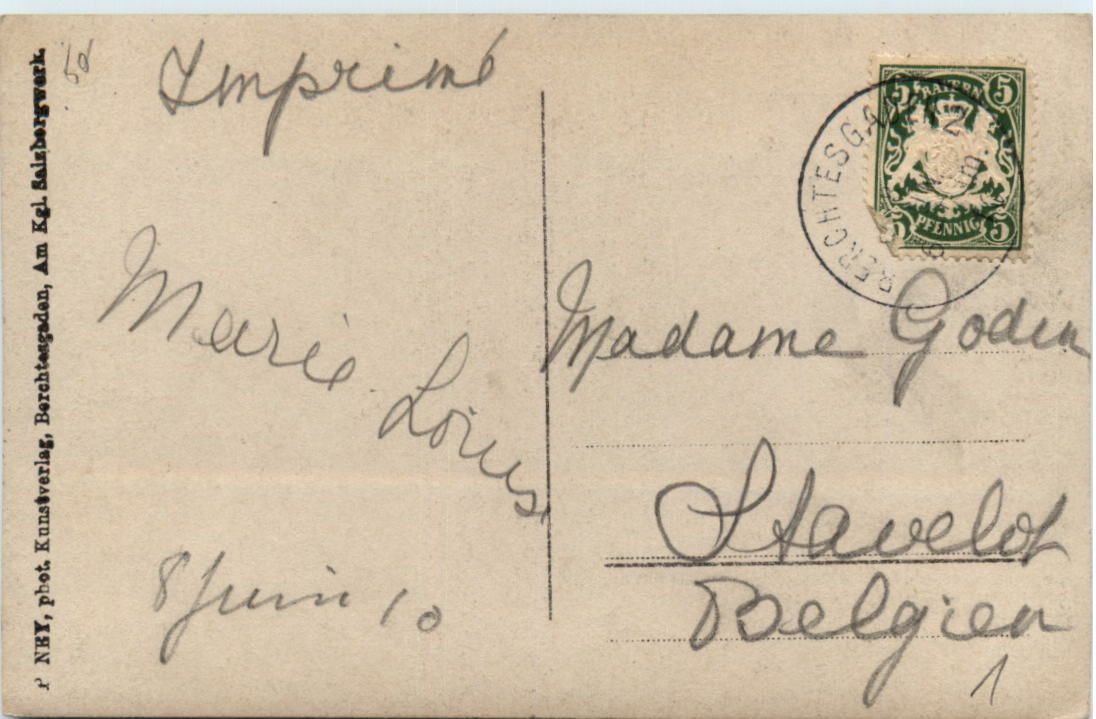 50
Imprimé
NEY, phot. Kunstverlag, Berchtesgaden, Am Kgl. Salzbergwerk.
BERCHTESGADEN 2
5 BAYERN 5
5 PFENNIG 5
Marie Louise
8 Juin 10
Madame Godin
Stavelot
Belgien
1